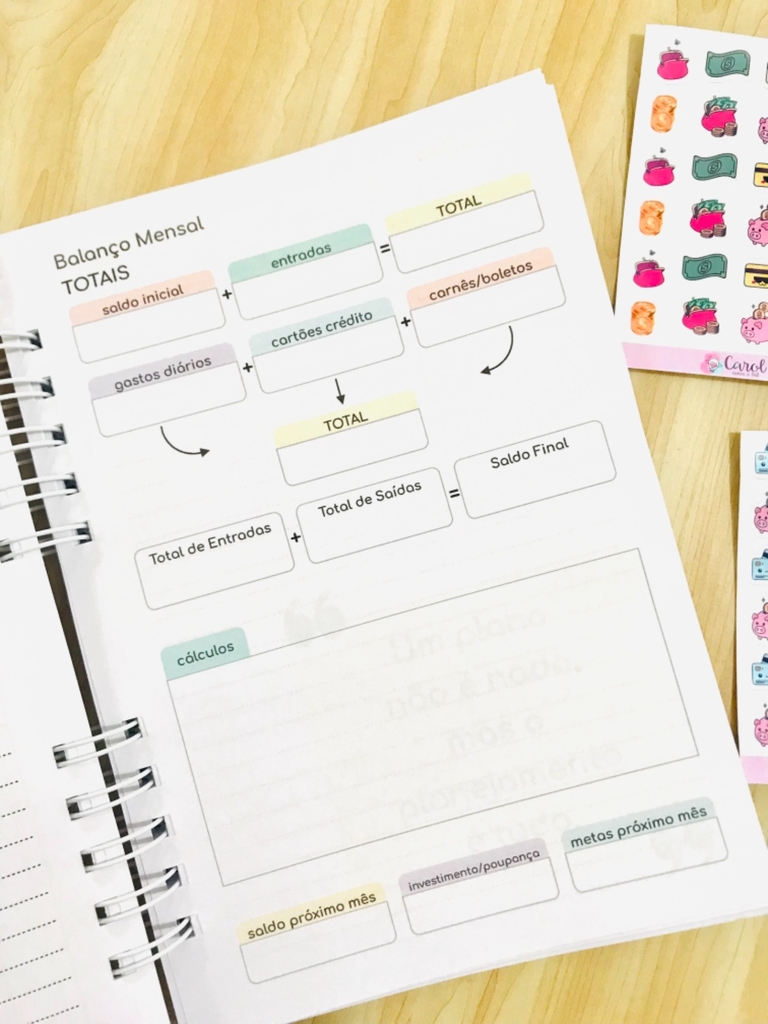 Balanço Mensal
TOTAIS
saldo inicial + entradas = TOTAL
gastos diários + cartões crédito + carnês/boletos
TOTAL
Total de Entradas + Total de Saídas = Saldo Final
cálculos
Um plano
não é nada,
mas o
planejamento
é tudo
saldo próximo mês
investimento/poupança
metas próximo mês
Carol